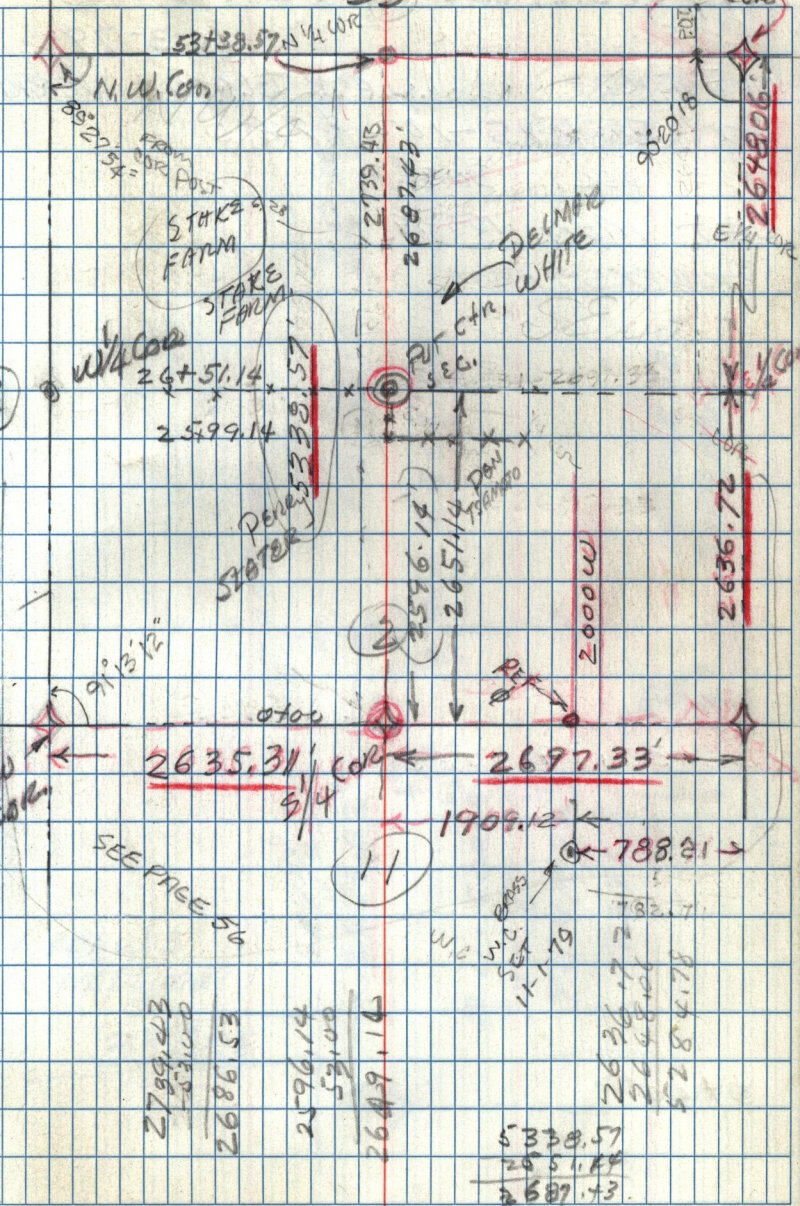 53+38.57 N 1/4 COR
N.W. Cor
89°27'54"
FROM
COR POST
STAKE
FARM
STAKE
FARM
2739.43
2687.43'
DELMAR
WHITE
90°20'18
2648.06
E 1/4 COR
W 1/4 COR
26+51.14
25+99.14
5338.57'
PUT CTR.
SEC.
2697.33
E 1/4 COR
COR
PERRY
SLATER
DON
2596.14'
2651.14
2000 W
2636.72
2
91°13'12"
0+00
REF
COR.
2635.31'
S 1/4 COR
2697.33'
1909.12
788.21
11
SEE PAGE 56
W.C.
W.C. BRASS
SET
11-1-79
782.7
2739.43
-53.00
2686.53
2596.14
53.00
2649.14
2636.72
2648.06
5284.78
5338.57
2651.14
2687.43